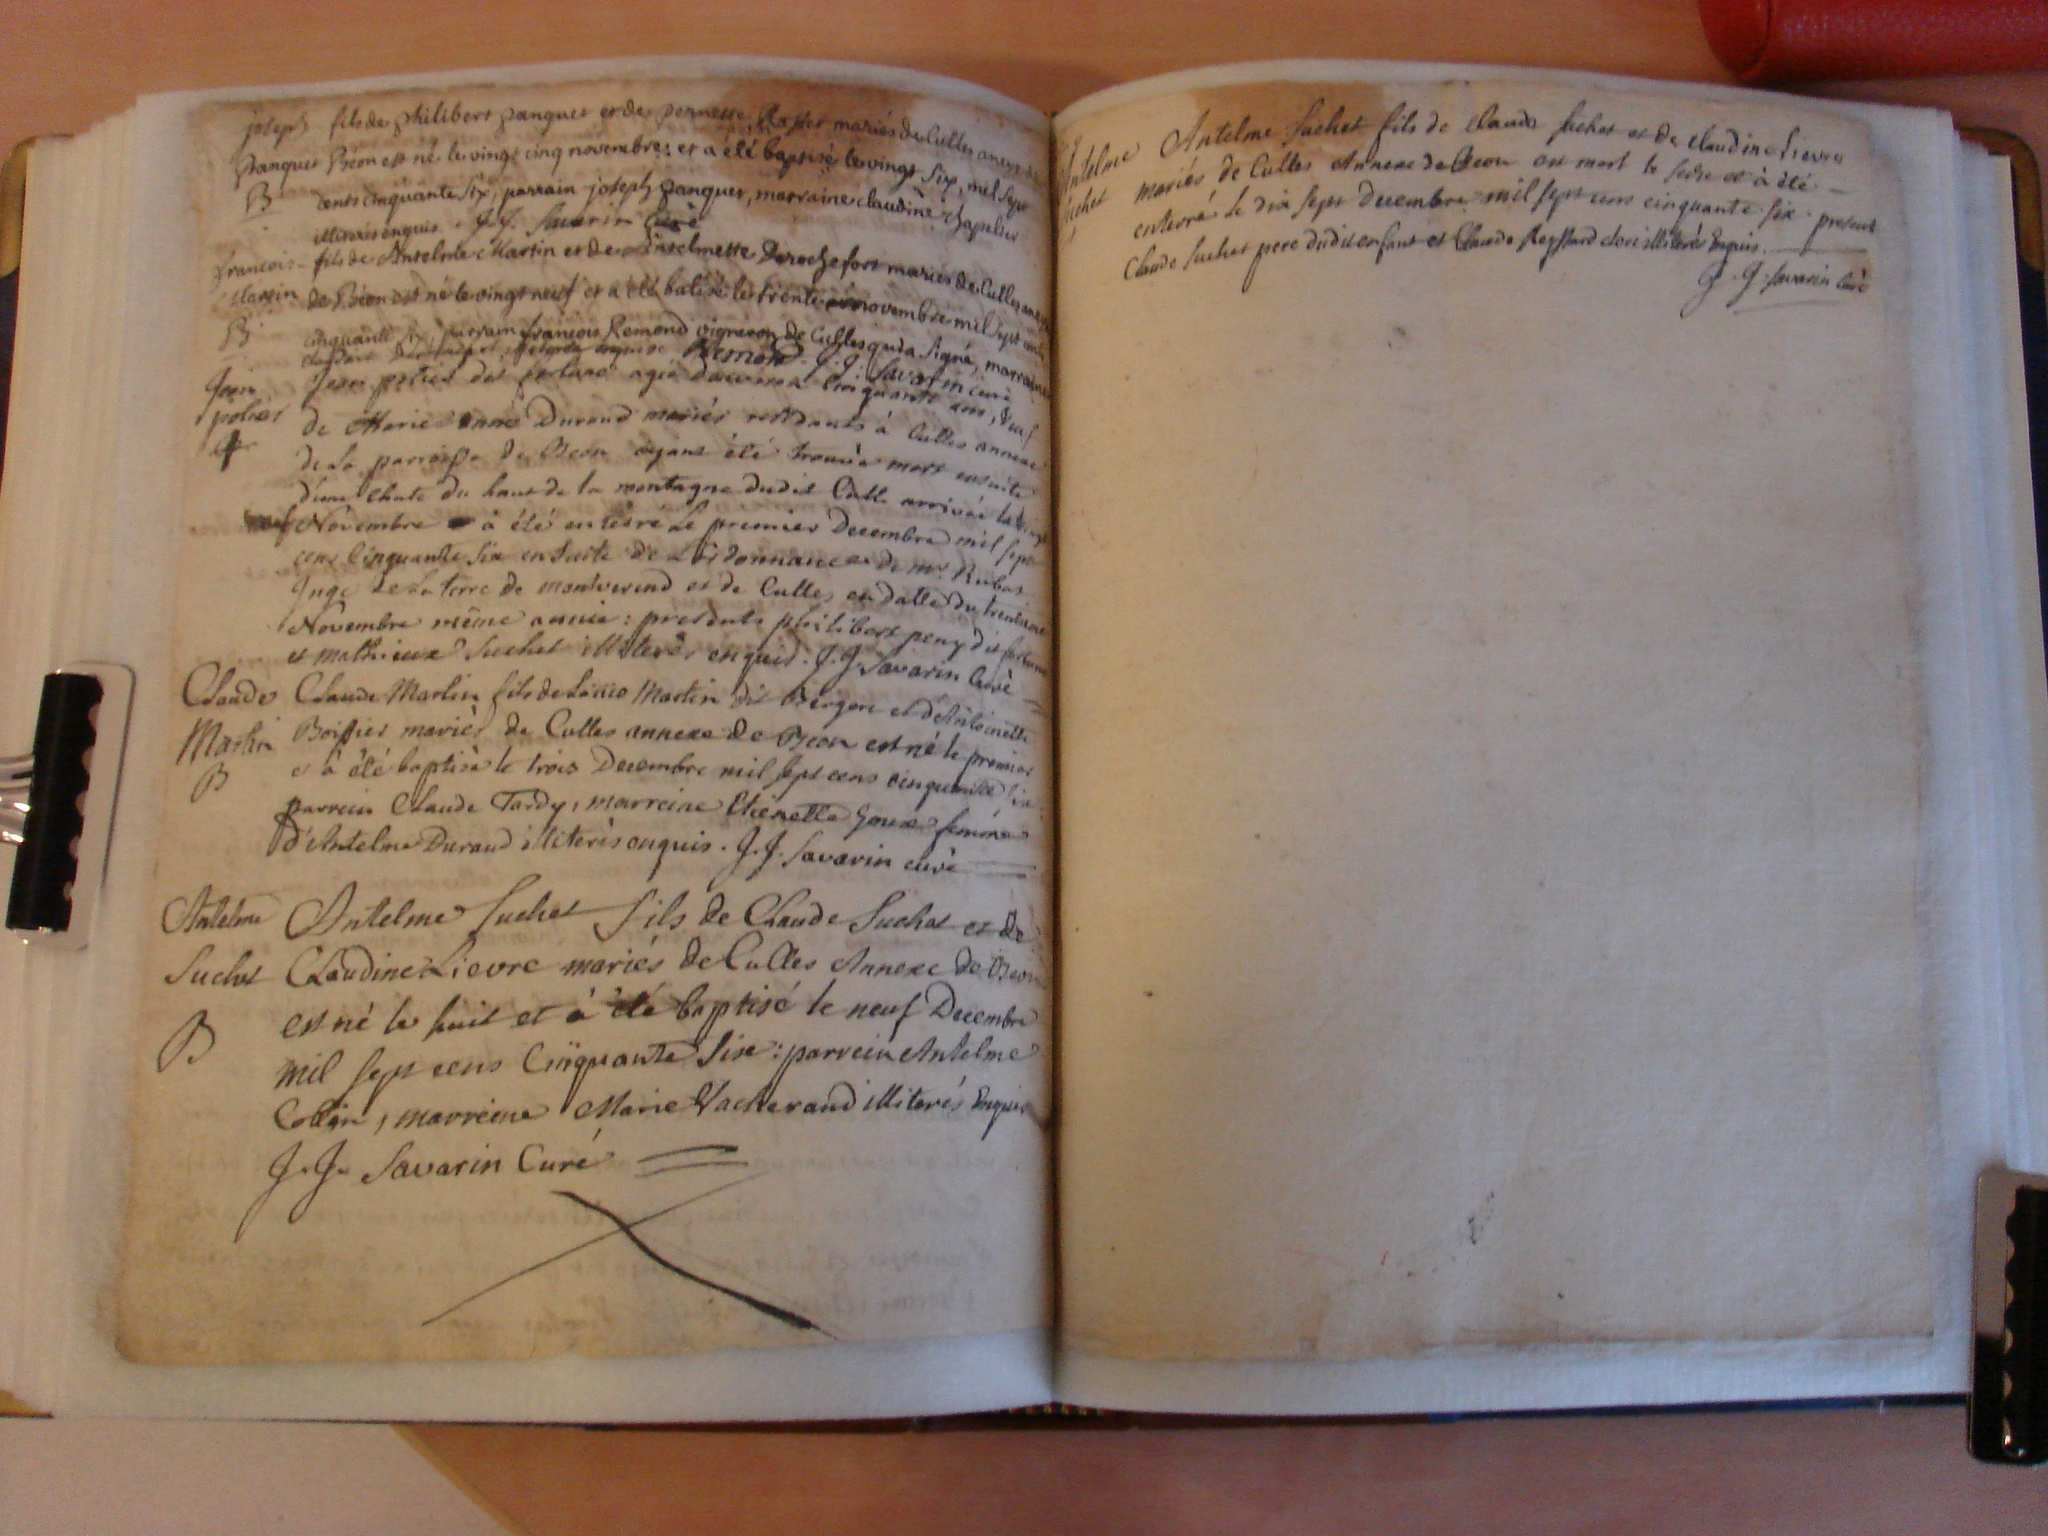 joseph fils de philibert panquet et de pernette Raffet mariés de Culles annexe
panquet Béon est né le vingt cinq novembre et a été baptisé le vingt six, mil sept
B cents cinquante six, parrain joseph panquet, marraine claudine chapelier
illiterés enquis. J. J. Savarin Curé
francois fils de Antelme Martin et de Antelmette Derochefort mariés de Culles
Martin de Béon est né le vingt neuf et a été batisé le trente novembre mil sept cents
B cinquante six, parrain francois Remond vigneron de Culles qui a signé, marraine
enquise Remond. J. J. Savarin curé
Jean Jean potier dit fortuné agé d'environ Cinquante ans, veuf
potier de Marie Anne Durand mariés residants à Culles annexe
de la parroisse de Beon ayant été trouvé mort ensuite
d'une chute du haut de la montagne dudit Culle arrivée le vingt
neuf Novembre à été enterré Le premier Decembre mil sept
cens Cinquante six en suite de L'ordonnance de Mr. Rubat
Juge de La terre de montverand et de Culles en datte du trentieme
Novembre même année : presents philibert peny dit fortuné
et mathieux Suchet illiterés enquis. J. J. Savarin Curé
Claude Claude Martin fils de Martin dit Bergere et d'Antoinette
Martin Boissier mariés de Culles annexe de Beon est né le premier
B et à été baptisé le trois Decembre mil sept cens cinquante six
parrein Claude Tardy, marreine Etienette Goux femme
d'Antelme Durand illiterés enquis. J. J. Savarin curé
Antelme Antelme Suchet fils de Claude Suchet et de
Suchet Claudine Lievre mariés de Culles Annexe de Beon
est né le huit et à été baptisé le neuf Decembre
B mil sept cens Cinquante Six : parrein Antelme
Collin, marreine Marie Vacherand illiterés Enquis
J. J. Savarin Curé
Antelme Antelme Suchet fils de Claude Suchet et de Claudine Lievre
Suchet mariés de Culles Annexe de Beon est mort le seize et à été
enterré le dix sept Decembre mil sept cens cinquante six. present
Claude Suchet pere dudit enfant et Claude Reyssard clerc illiterés Enquis.
J. J. Savarin Curé